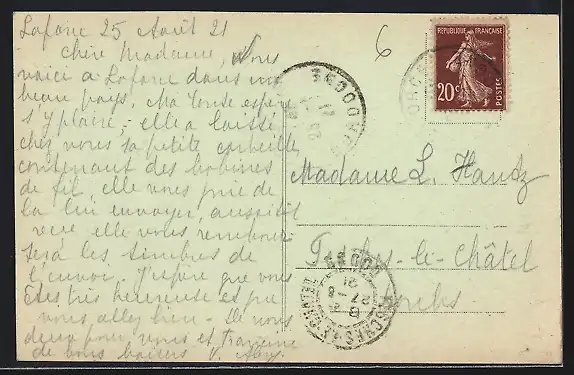 Lafone 25 Août 21
Chère Madame, Nous
voici a Lafone dans un
beau pays. Ma Tonse espère
s'y plaire, elle a laissé
chez vous sa petite corbeille
contenant des bobines
de fil, elle vous prie de
la lui envoyer, aussitôt
elle vous rembour
sera les timbres de
l'envoi. J'espère que vous
êtes très heureuse et que
vous allez bien. De nous
deux pour vous et
de bons baisers
6
REPUBLIQUE FRANÇAISE
20c
POSTES
Madame L. Hantz
-le-Châtel
Doubs
DOUBS
27-8
21